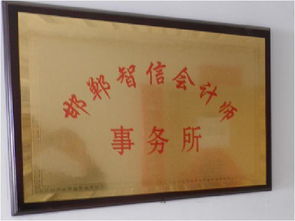 邯郸智信会计师
事务所